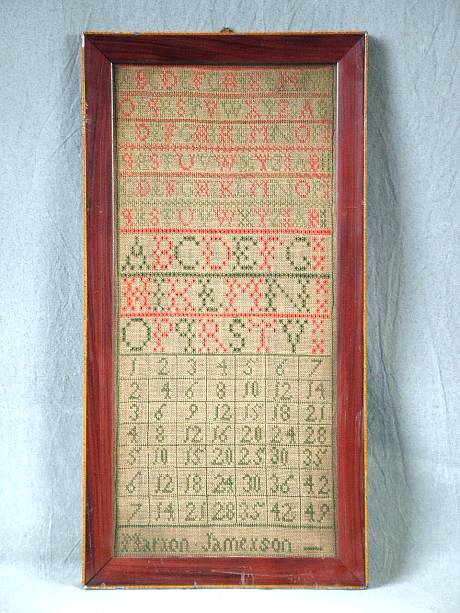 D F H M
O P S V W X Y Z A
D F H M O
Q S U W Y
D F H K M O
Q S U W X Y
A B C D E F G
H I K L M N
O P Q R S T V
1 2 3 4 5 6 7
2 4 6 8 10 12 14
3 6 9 12 15 18 21
4 8 12 16 20 24 28
5 10 15 20 25 30 35
6 12 18 24 30 36 42
7 14 21 28 35 42 49
Marion Jamexson